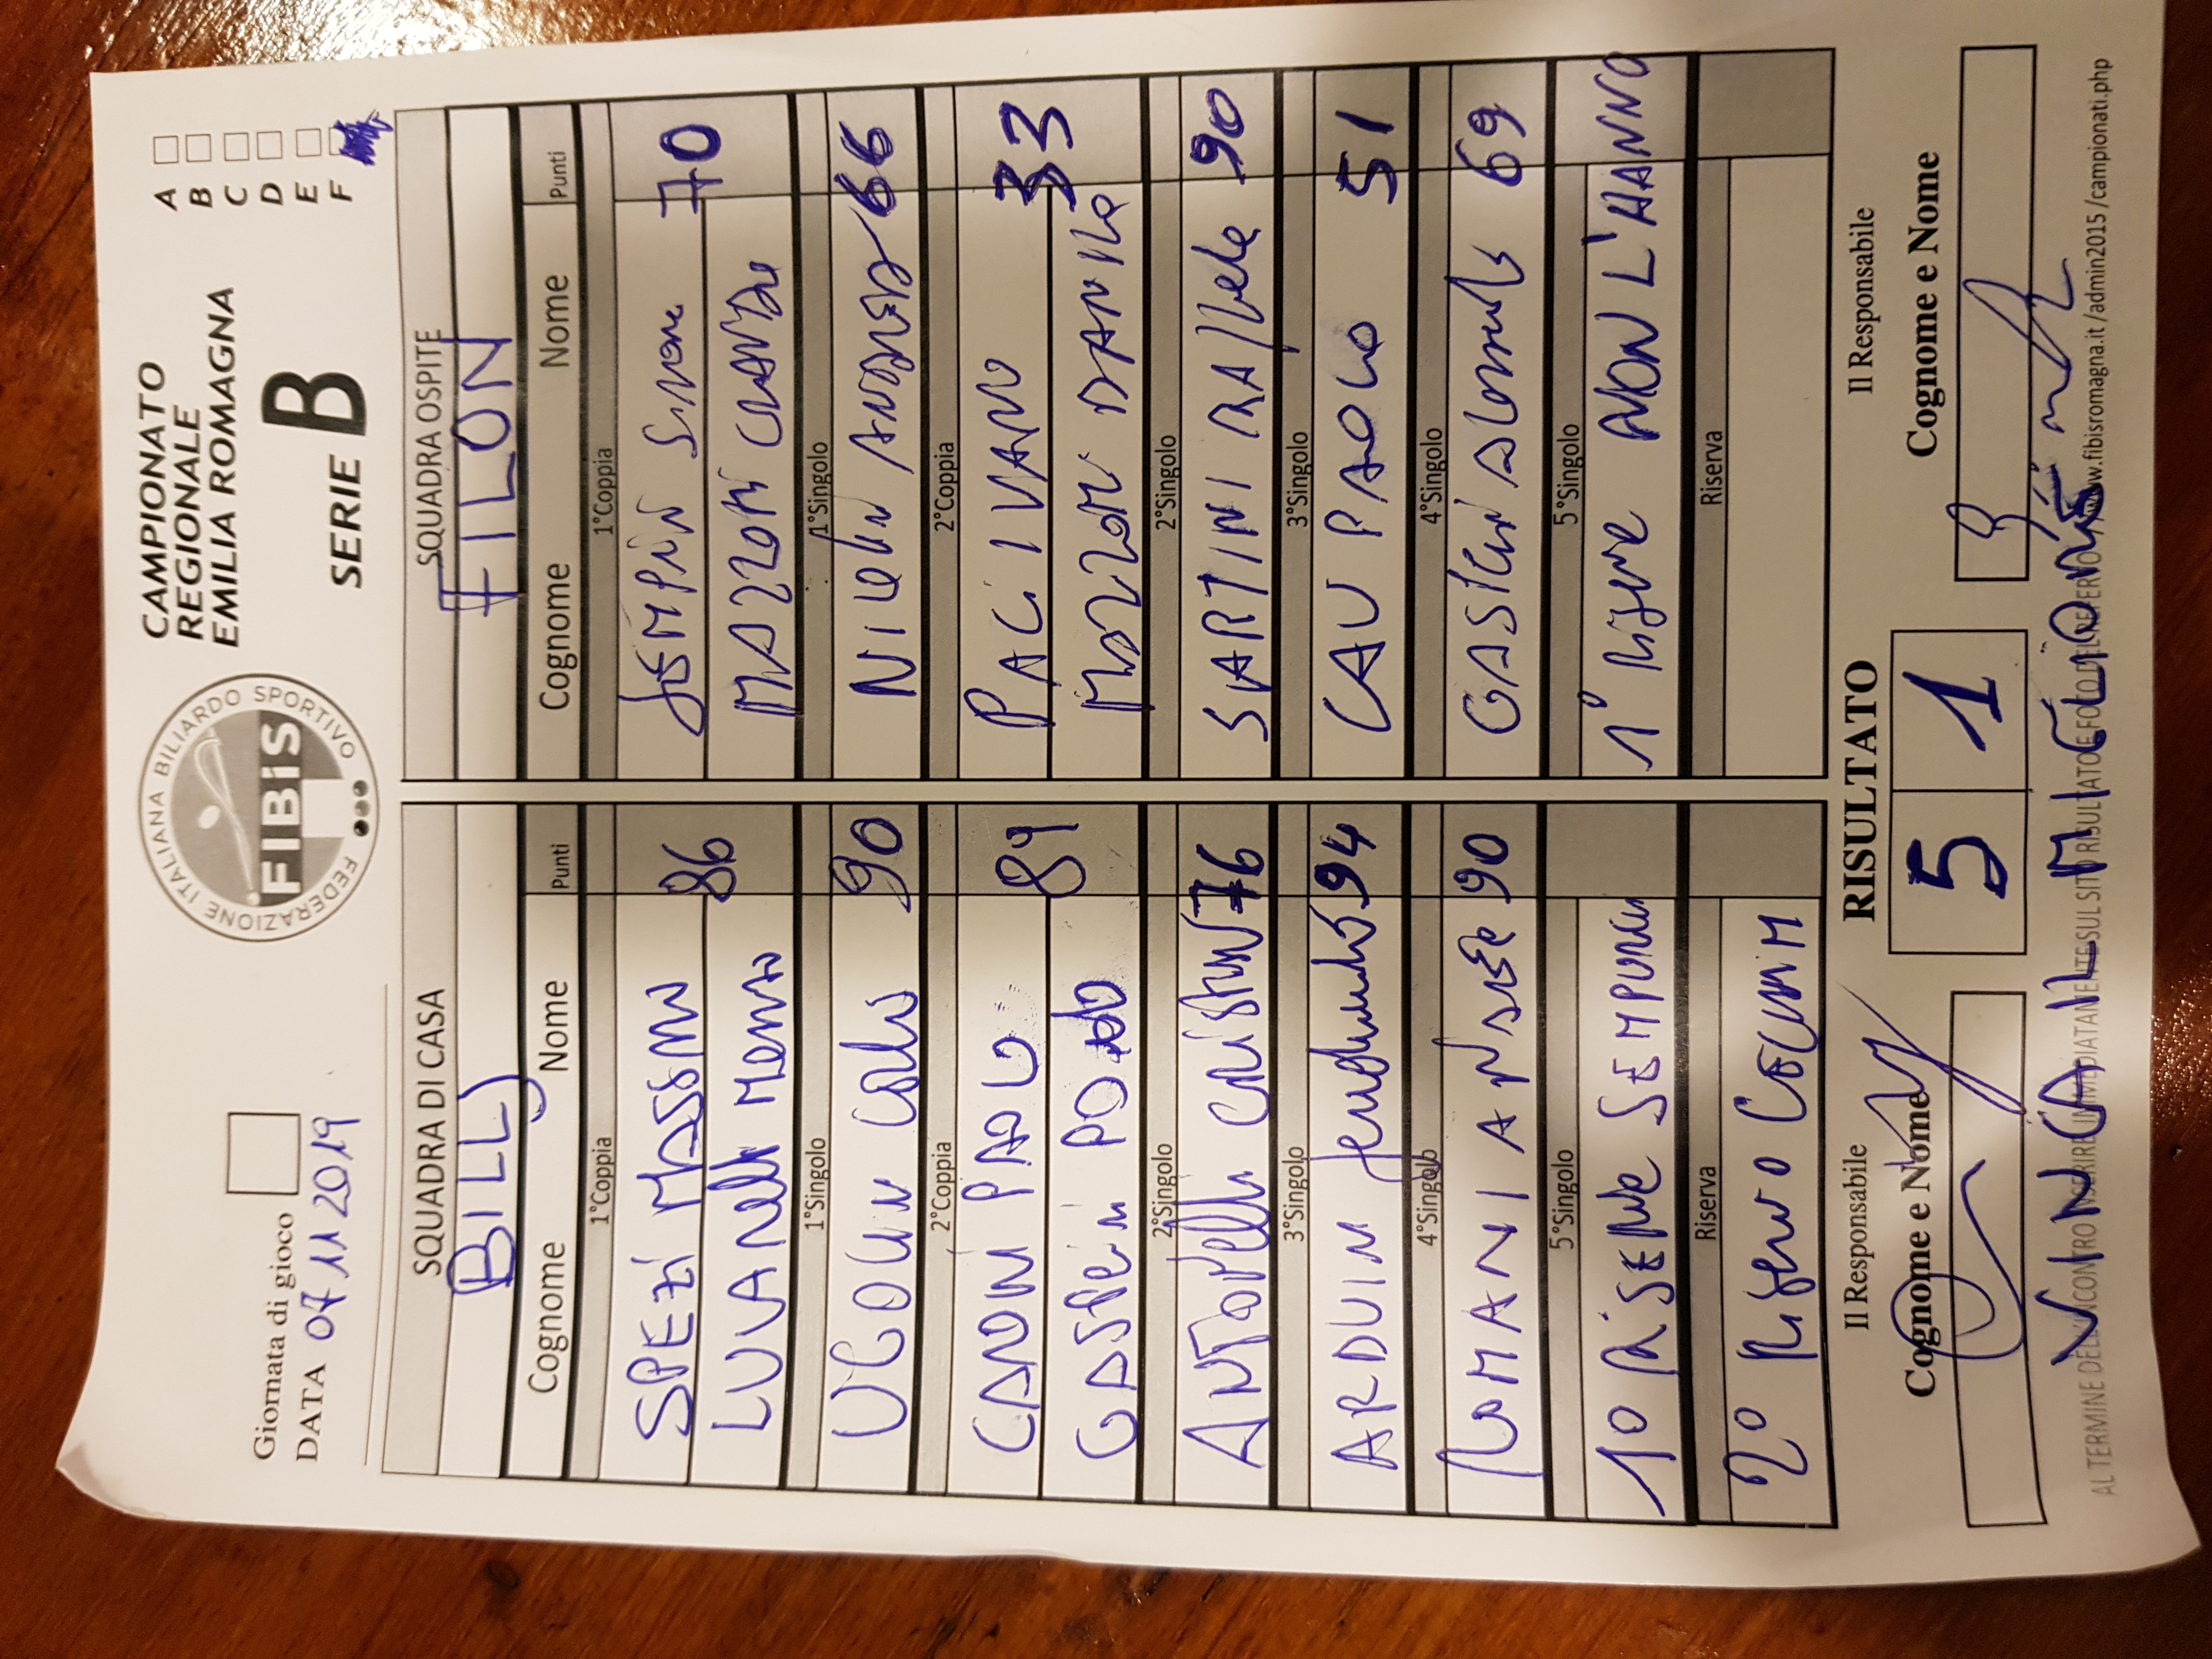 Giornata di gioco
DATA 07 11 2019
FEDERAZIONE ITALIANA BILIARDO SPORTIVO
FIBiS
CAMPIONATO
REGIONALE
EMILIA ROMAGNA
SERIE B
A
B
C
D
E
F
SQUADRA DI CASA
BILLY
Cognome Nome Punti
1°Coppia
SPEZI MASSIMO
LUVANELLI 86
1°Singolo
UGOLINI CARLO 90
2°Coppia
CANONI PAOLO
GASPERINI 89
2°Singolo
ANTONELLI CRISTIAN 76
3°Singolo
ARDUINI 94
4°Singolo
ROMANI 90
5°Singolo
1° RISERVA SEMPRINI
Riserva
2° RISERVA CECCHINI M
SQUADRA OSPITE
FILON
Cognome Nome Punti
1°Coppia
SEMPRINI Simone
MAZZOTTI CLAUDIO 70
1°Singolo
NICOLINI ANDREA 66
2°Coppia
PACI IVANO
MAZZOTTI DANILO 33
2°Singolo
SARTINI RAFFAELE 90
3°Singolo
CAU PAOLO 51
4°Singolo
69
5°Singolo
1° RISERVA NON L'HANNO
Riserva
Il Responsabile
RISULTATO
Il Responsabile
Cognome e Nome
5 1
Cognome e Nome
VINCA IL MIGLIORE
AL TERMINE DELL'INCONTRO INSERIRE IMMEDIATAMENTE SUL SITO RISULTATO E FOTO DEL REFERTO www.fibisromagna.it/admin2015/campionati.php